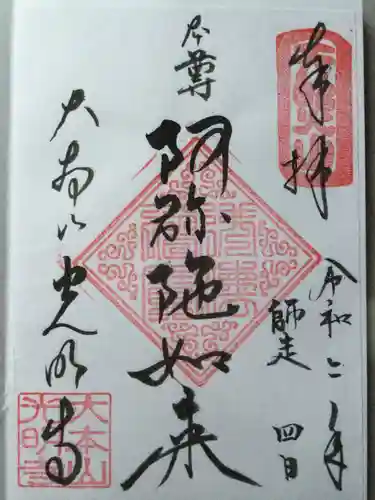 奉拝
令和二年
師走
四日
本尊
阿弥陀如来
大本山光明寺
大本山
光明寺